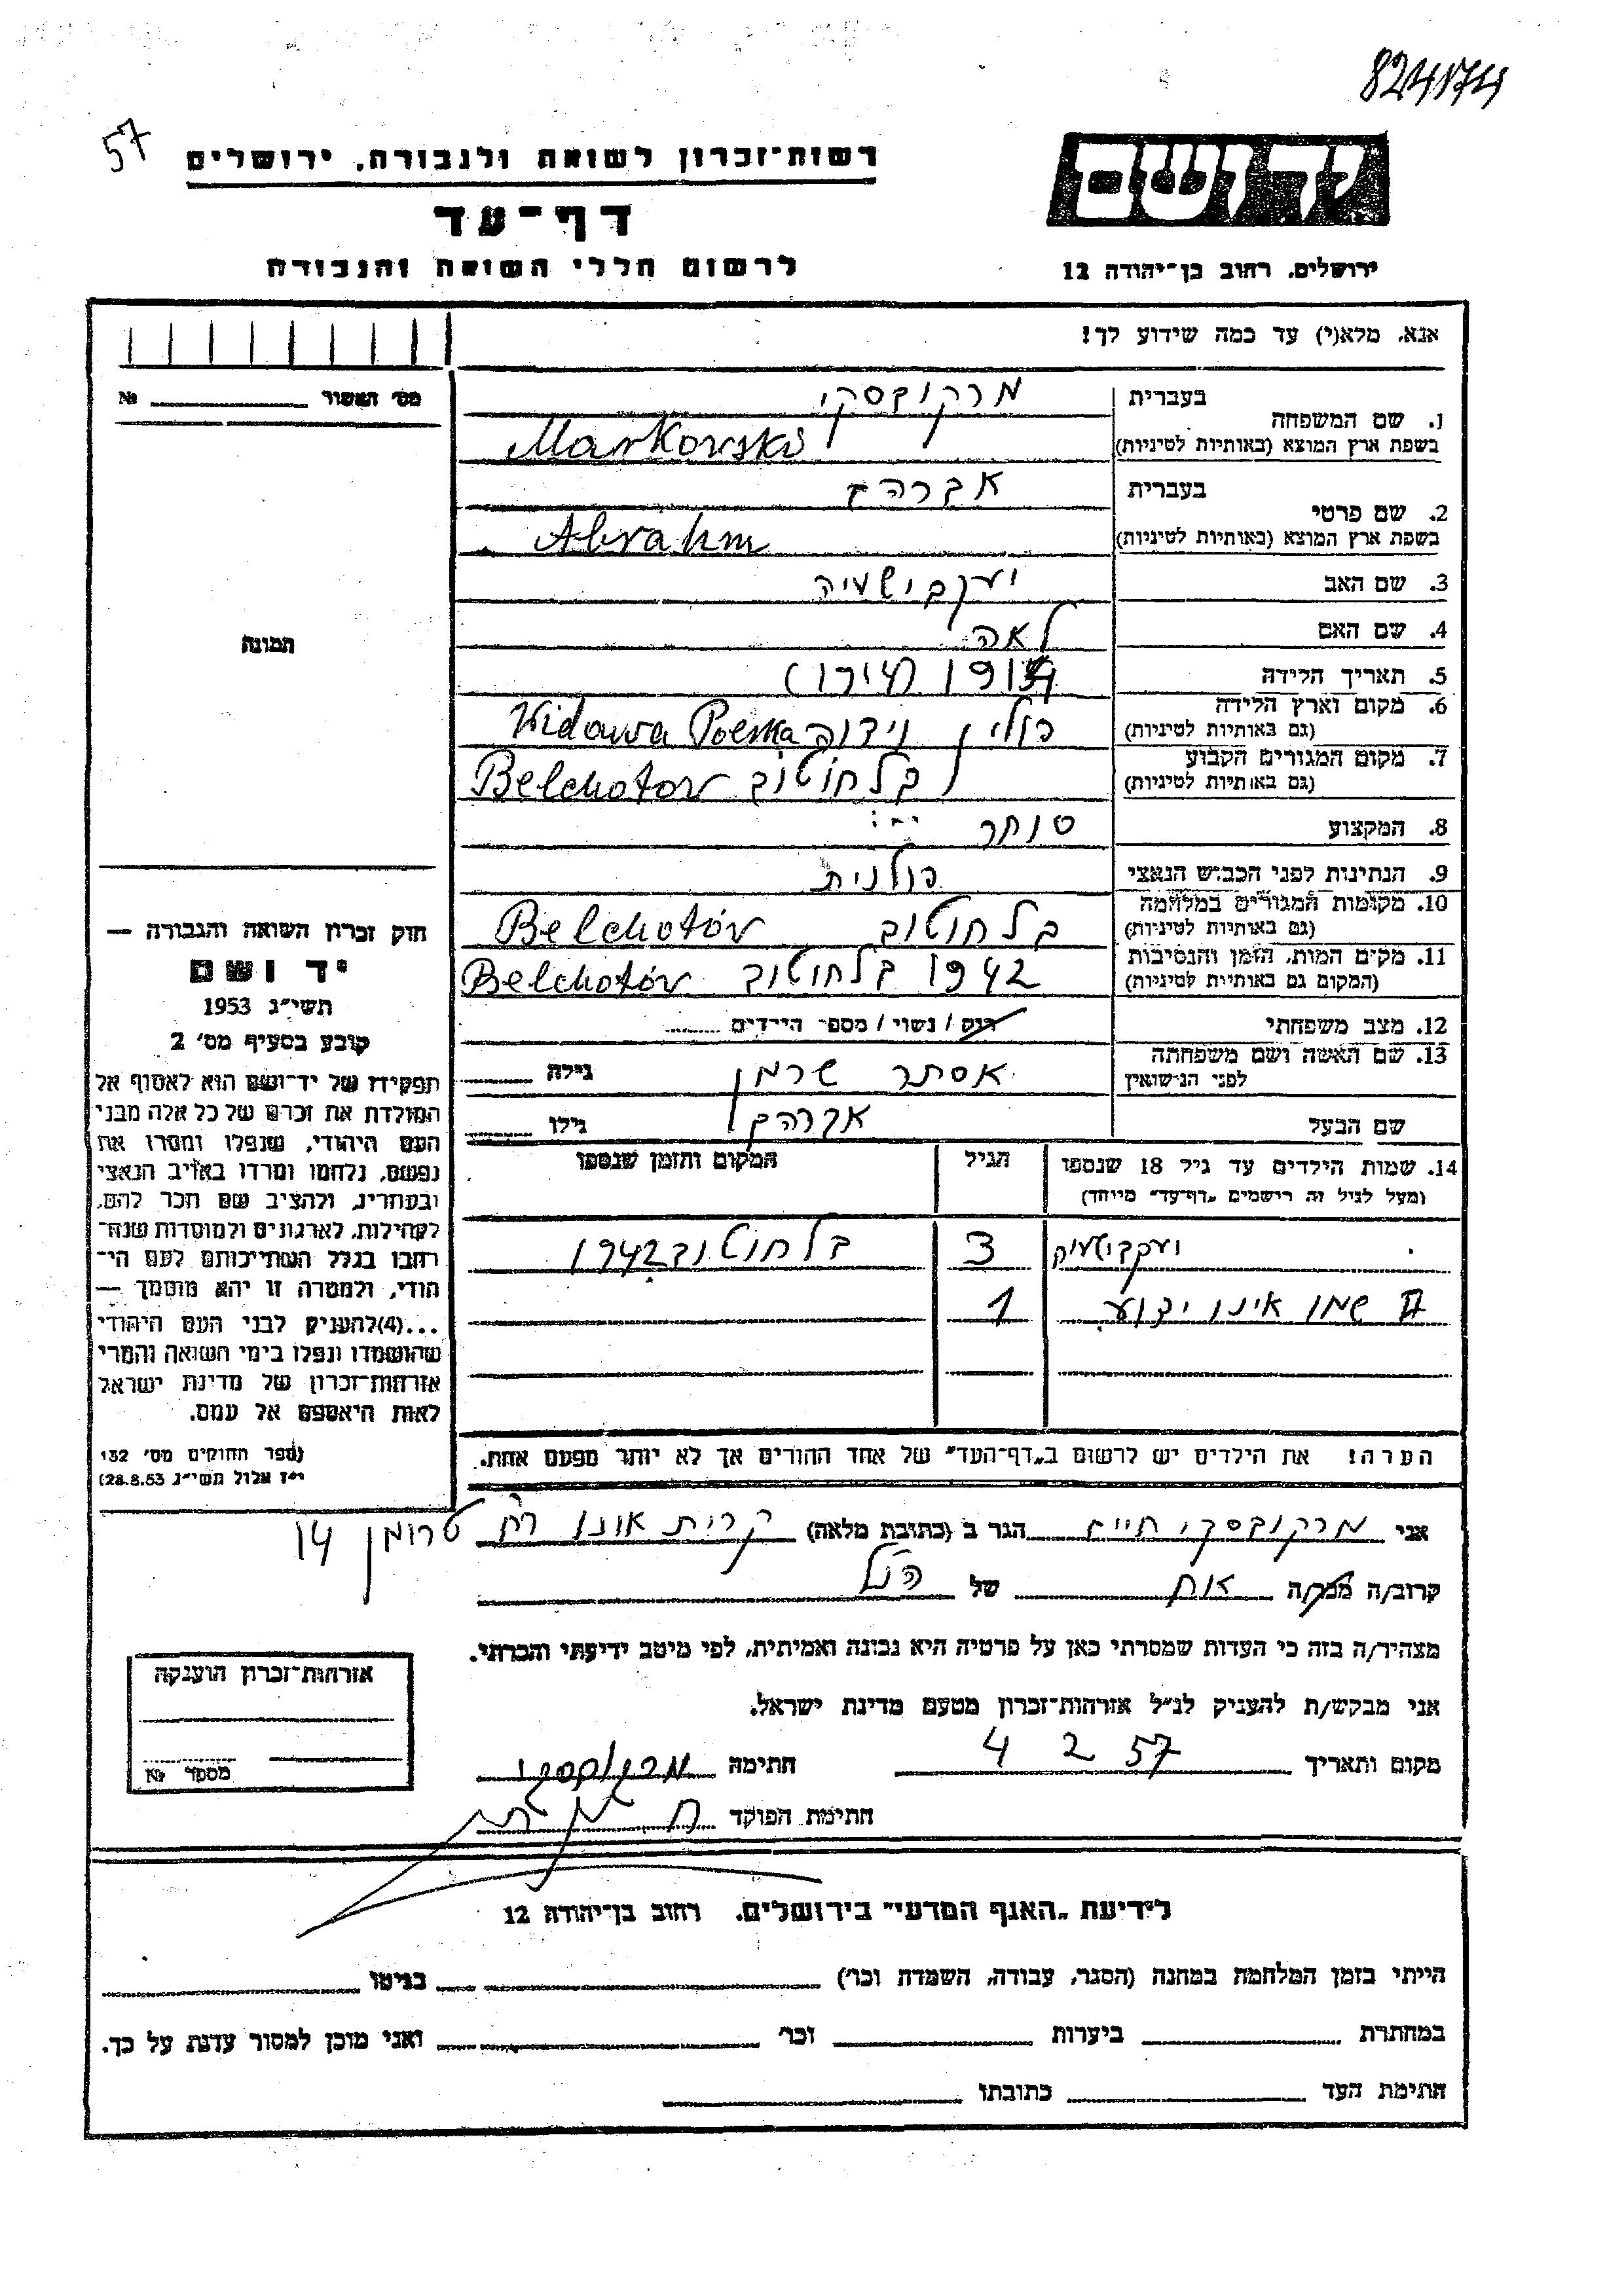 824174
57
רשות־זכרון לשואה ולגבורה, ירושלים
יד ושם
דף־עד
לרשום חללי השואה והגבורה
ירושלים, רחוב בן־יהודה 12
אנא, מלא(י) עד כמה שידוע לך!
מס' האשור № 
1. שם המשפחה
בעברית מרקובסקי
בשפת ארץ המוצא (באותיות לטיניות) Markowski
2. שם פרטי
בעברית אברהם
בשפת ארץ המוצא (באותיות לטיניות) Abrahm
3. שם האב יעקב ישעיה
4. שם האם לאה
תמונה
5. תאריך הלידה
6. מקום וארץ הלידה (גם באותיות לטיניות) פולין Widawa
7. מקום המגורים הקבוע (גם באותיות לטיניות) בלחוטוב Belchotow
8. המקצוע סוחר
9. הנתינות לפני הכבוש הנאצי פולנית
10. מקומות המגורים במלחמה (גם באותיות לטיניות) בלחוטוב Belchotów
11. מקום המות, הזמן והנסיבות (המקום גם באותיות לטיניות) 1942 בלחוטוב Belchotów
12. מצב משפחתי רוק / נשוי / מספר הילדים
13. שם האשה ושם משפחתה לפני הנישואין אסתר שרמן גילה
שם הבעל אברהם גילו
14. שמות הילדים עד גיל 18 שנספו הגיל המקום והזמן שנספו
(מעל לגיל זה רושמים "דף־עד" מיוחד)
3 בלחוטוב 1942
שמו אינו ידוע 1
הערה! את הילדים יש לרשום ב"דף־העד" של אחד ההורים אך לא יותר מפעם אחת.
חוק זכרון השואה והגבורה —
יד ושם
תשי"ג 1953
קובע בסעיף מס' 2
תפקידו של יד־ושם הוא לאסוף אל
המולדת את זכרם של כל אלה מבני
העם היהודי, שנפלו ומסרו את
נפשם, נלחמו ומרדו באויב הנאצי
ובעוזריו, ולהציב שם וזכר להם,
לקהילות, לארגונים ולמוסדות שנח־
רחבו בגלל השתייכותם לעם הי־
הודי, ולמטרה זו יהא מוסמך —
...(4) להעניק לבני העם היהודי
שהושמדו ונפלו בימי השואה והמרי
אזרחות־זכרון של מדינת ישראל
לאות היאספם אל עמם.
(ספר החוקים מס' 132
י"ז אלול תשי"ג 28.8.53)
אני מרקובסקי חיים הגר ב (כתובת מלאה) קרית אונו רח טרומן 14
קרוב/ה מכר/ה אח של הנ"ל
מצהיר/ה בזה כי העדות שמסרתי כאן על פרטיה היא נכונה ואמיתית, לפי מיטב ידיעתי והכרתי.
אני מבקש/ת להעניק לנ"ל אזרחות־זכרון מטעם מדינת ישראל.
מקום ותאריך 4 2 57 חתימה מרקובסקי
חתימת הפוקד
אזרחות־זכרון הוענקה
מספר №
לידיעת "האגף המדעי" בירושלים, רחוב בן־יהודה 12
הייתי בזמן המלחמה במחנה (הסגר, עבודה, השמדה וכו') בגיטו
במחתרת ביערות וכו' ואני מוכן למסור עדות על כך.
חתימת העד כתובתו